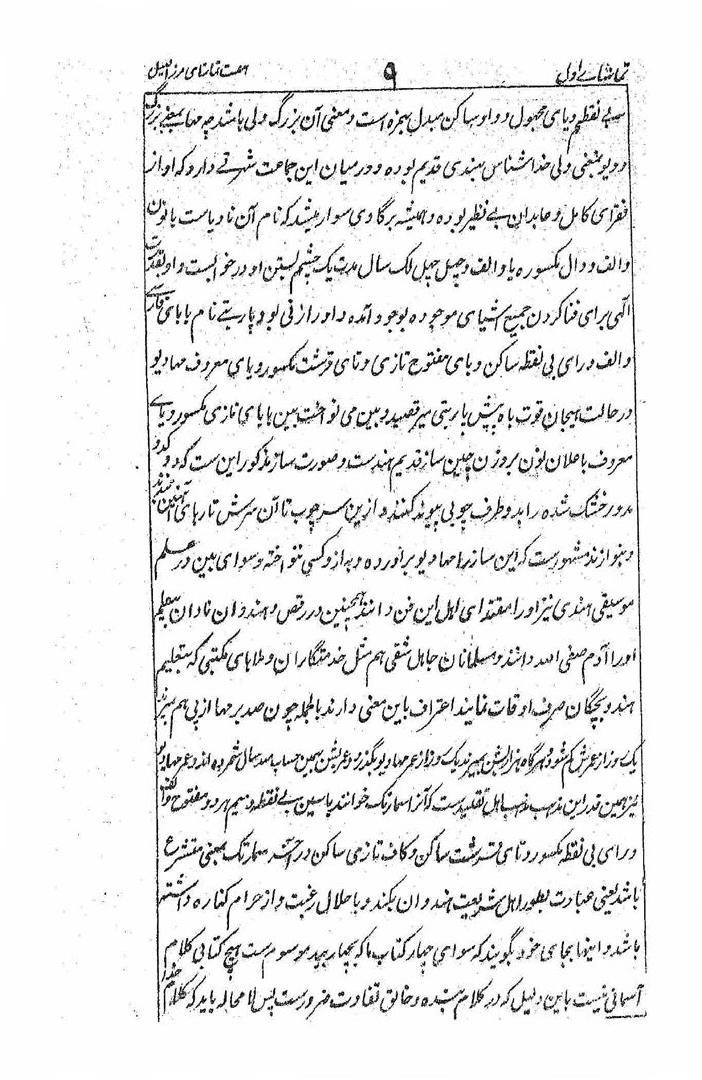 تماشاے اول ۹ هفت تماشای مرزا قتیل
بے نقطه و یای مجهول و واو ساکن مبدل بهمزه است و معنی آن بزرگ ولی باشد چه مها بمعنی بزرگ
و دیو بمعنی ولی خداشناس هندی قدیم بوده و درمیان این جماعت شهرتے دارد که او از
فقرای کامل و عابدان بے نظیر بوده و همیشه برگاوی سوار میشد که نام آن نادیاست بانون
والف و دال مکسوره یا و الف و چهل چهل لک سال مدت یک چشم بستن او در خواب است و او بقدرت
الهی برای فنا کردن جمیع اشیای موجوده بوجود آمده و او را زنی بود پاربتے نام بابای فارسی
والف و رای بی نقطه ساکن و بای مفتوح تازی و تای قرشت مکسور و یای معروف مهادیو
در حالت هیجان قوت باه پیش پاربتی میرقصید و بین می نواخت بین بابای تازی مکسور و یاے
معروف باعلان نون بروزن چین ساز قدیم هندست و صورت ساز مذکور این ست که دو کدو
مدور خشک شده را بدو طرف چوبی پیوند کنند و ازین سر چوب تا آن سرش تارهای آهنین بندند
و بنوازند مشهورست که این ساز را مهادیو برآورده و به از و کسی ننواخته و سوای بین در علم
موسیقی هندی نیز او را مقتدای اهل این فن دانند همچنین در رقص و هندوان نادان بتعلیم
او را آدم صفی الله دانند و مسلمانان جاهل شقی هم مثل خدمتگاران و ملاهای مکتبی که بتعلیم
هندو بچگان صرف اوقات نمایند اعتراف باین معنی دارند بالجمله چون صد برمها از پی هم بمیرند
یک روز از عمرش کم شود و هرگاه هزار بشن بمیرند یک روز از عمر مهادیو بگذرد و عمر بشن بهمین حساب صد سال شمرده اند و عمر مهادیو
نیز همین قدر این مذهب مذهب اهل تقلیدست که آنرا سمارتک خوانند باسین بے نقطه و میم هر دو مفتوح و الف
و رای بی نقطه مکسور و تای قرشت ساکن و کاف تازی ساکن در آخر سمارتک بمعنی متشرع
باشد یعنی عبادت بطور اهل شریعت هندوان بکند و با حلال رغبت و از حرام کناره داشته
باشد و اینها بجای خود گویند که سوای چهار کتاب ما که بچهار بید موسوم ست هیچ کتابی کلام
آسمانی نیست باین دلیل که در کلام بنده و خالق تفاوت ضرورست پس لا محاله باید که کلام خدا